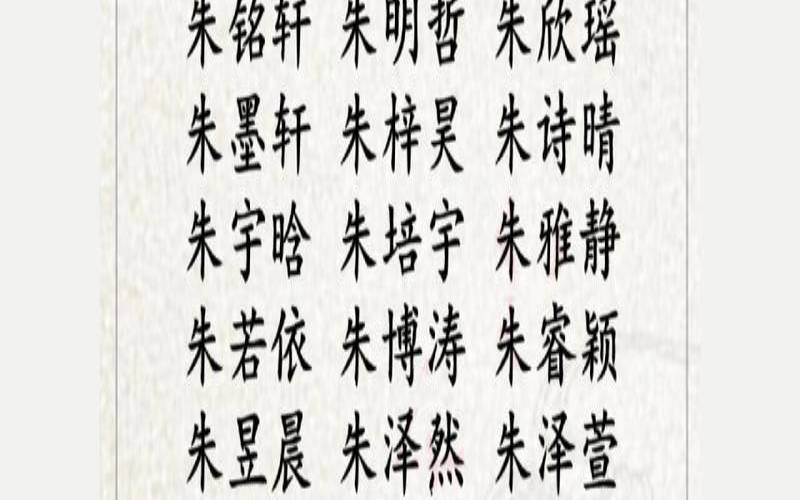 朱铭轩 朱明哲 朱欣瑶
朱墨轩 朱梓昊 朱诗晴
朱宇晗 朱培宇 朱雅静
朱若依 朱博涛 朱睿颖
朱昱晨 朱泽然 朱泽萱